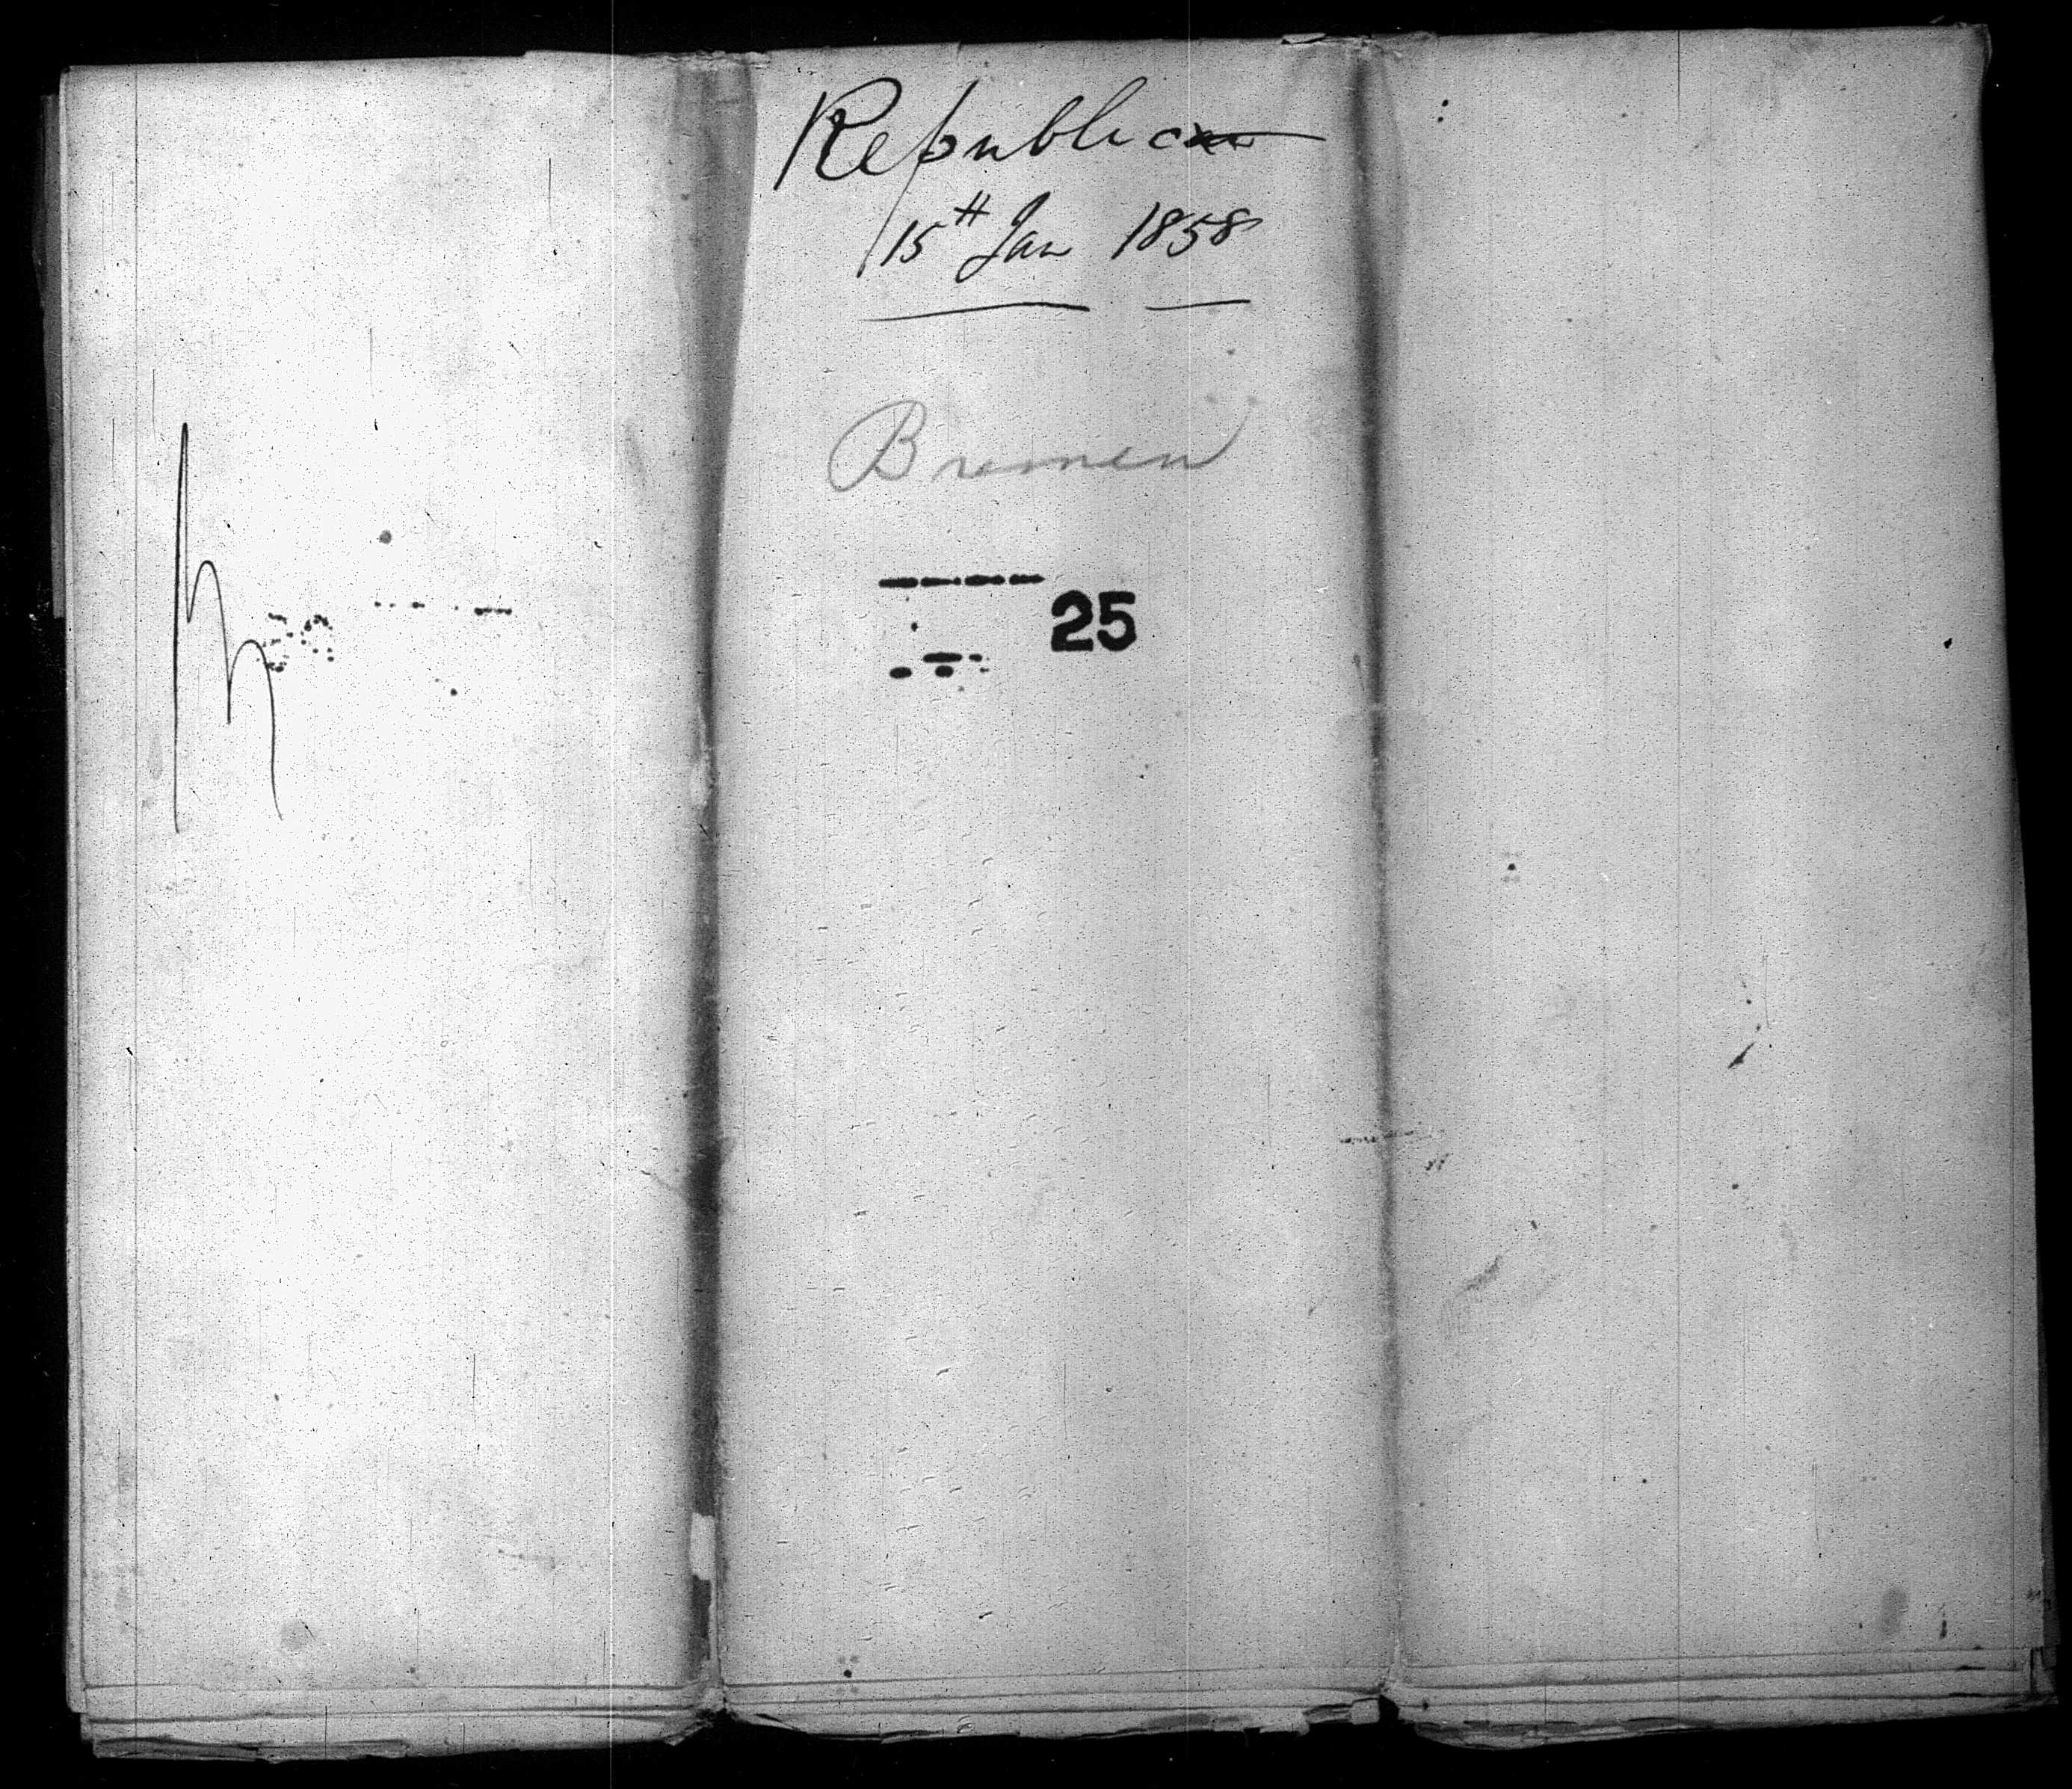 Republic
15th Jan 1858
Bremen
25